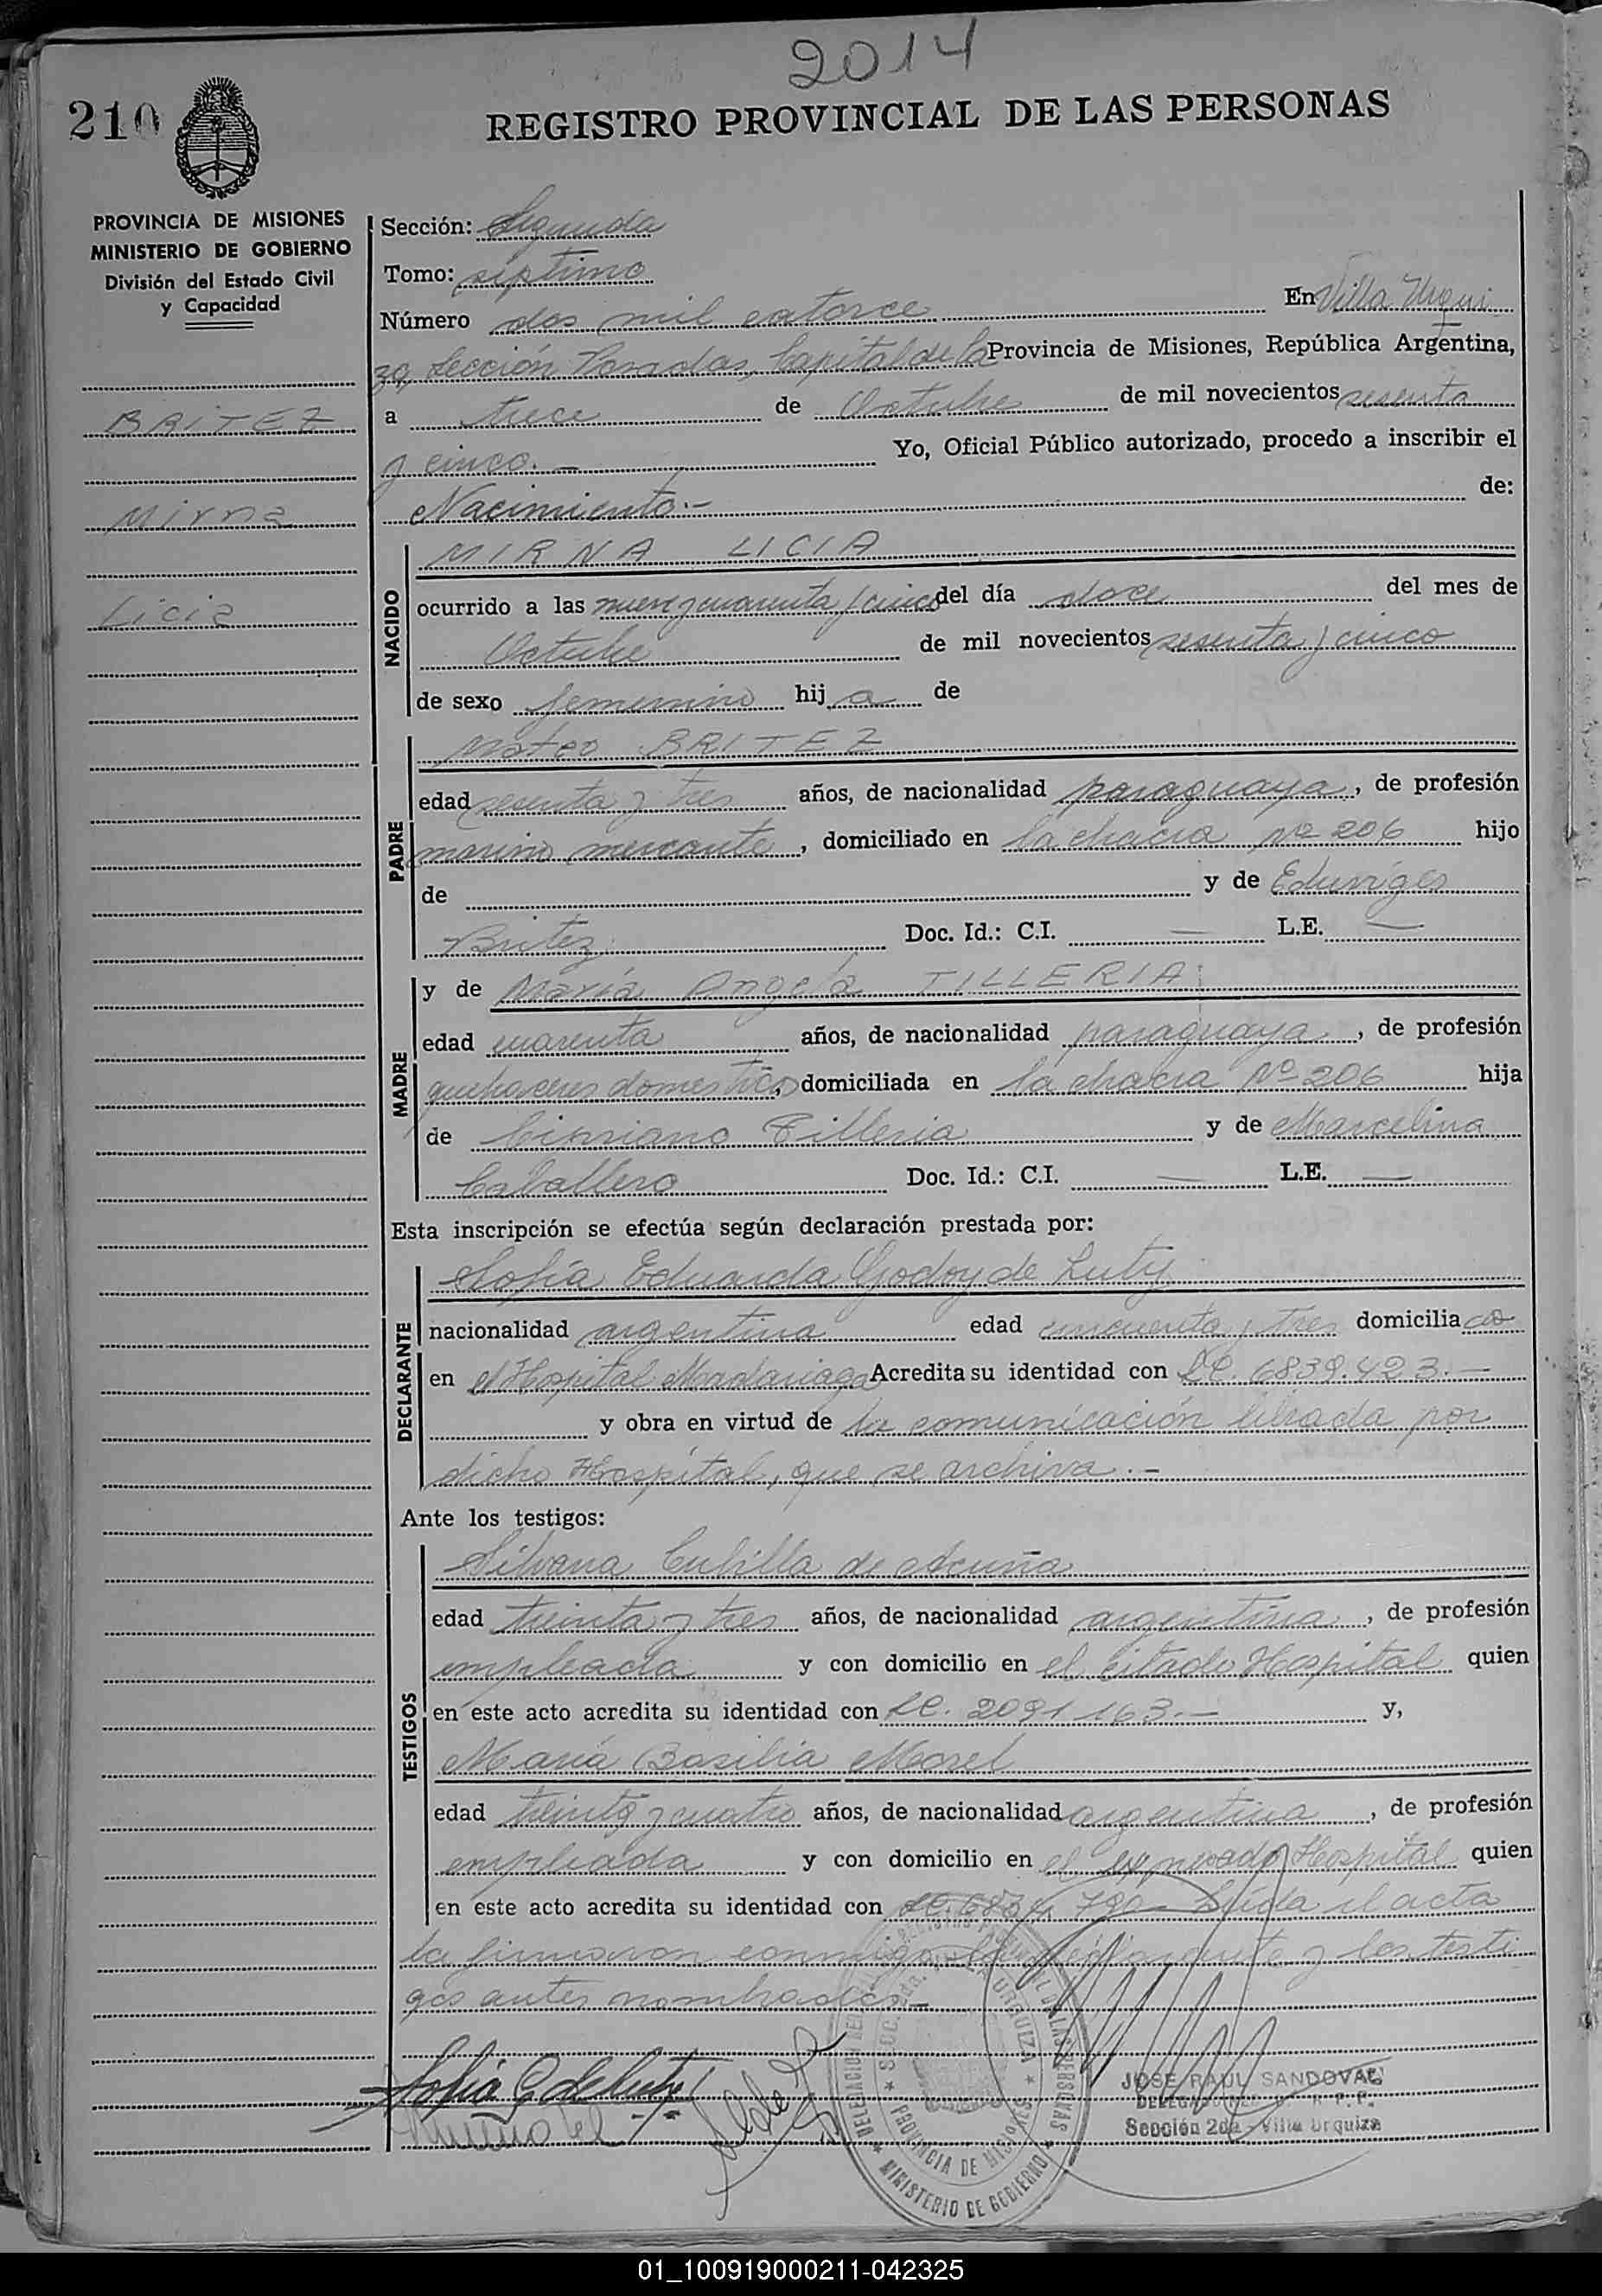 2014
210
REGISTRO PROVINCIAL DE LAS PERSONAS
PROVINCIA DE MISIONES
MINISTERIO DE GOBIERNO
División del Estado Civil
y Capacidad
BRITEZ
Mirna
Licia
Sección: Segunda
Tomo: séptimo
Número dos mil catorce En Villa Urqui
za, Sección Posadas, Capital de la Provincia de Misiones, República Argentina,
a trece de Octubre de mil novecientos sesenta
y cinco.- Yo, Oficial Público autorizado, procedo a inscribir el
Nacimiento.- de:
NACIDO
MIRNA LICIA
ocurrido a las nueve y cuarenta y cinco del día doce del mes de
Octubre de mil novecientos sesenta y cinco
de sexo femenino hija de
PADRE
Mateo BRITEZ
edad sesenta y tres años, de nacionalidad paraguaya, de profesión
marino mercante, domiciliado en la chacra Nº 206 hijo
de y de Eduviges
Britez Doc. Id.: C.I. — L.E. —
MADRE
y de María Angela TILLERIA
edad cuarenta años, de nacionalidad paraguaya, de profesión
quehaceres domesticos, domiciliada en la chacra Nº 206 hija
de Cipriano Tilleria y de Marcelina
Caballero Doc. Id.: C.I. — L.E. —
Esta inscripción se efectúa según declaración prestada por:
DECLARANTE
Sofía Eduarda Godoy de Luty
nacionalidad argentina edad cincuenta y tres domicilia da
en el Hospital Madariaga Acredita su identidad con LC. 6839.423.-
y obra en virtud de la comunicación librada por
dicho Hospital, que se archiva.-
Ante los testigos:
TESTIGOS
Silvana Cubilla de Acuña
edad treinta y tres años, de nacionalidad argentina, de profesión
empleada y con domicilio en el citado Hospital quien
en este acto acredita su identidad con LC. 2091163.- y,
María Basilia Morel
edad treinta y cuatro años, de nacionalidad argentina, de profesión
empleada y con domicilio en el expresado Hospital quien
en este acto acredita su identidad con LC. Leída el acta
la firmaron conmigo la declarante y los testi
gos antes nombrados.-
Sofía G de Luty
JOSE RAUL SANDOVAL
Sección 2da. Villa Urquiza
PROVINCIA DE MISIONES
MINISTERIO DE GOBIERNO
01_100919000211-042325